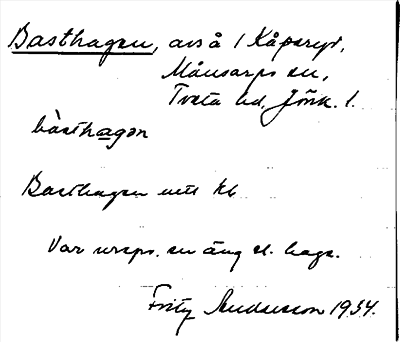 Basthagen, avs å 1 Kåperyd,
Månsarps sn,
Tveta hd, Jönk. l.
bàsthagən
Basthagen utt kb
Var urspr. en äng el. hage.
Fritz Andersson 1934.